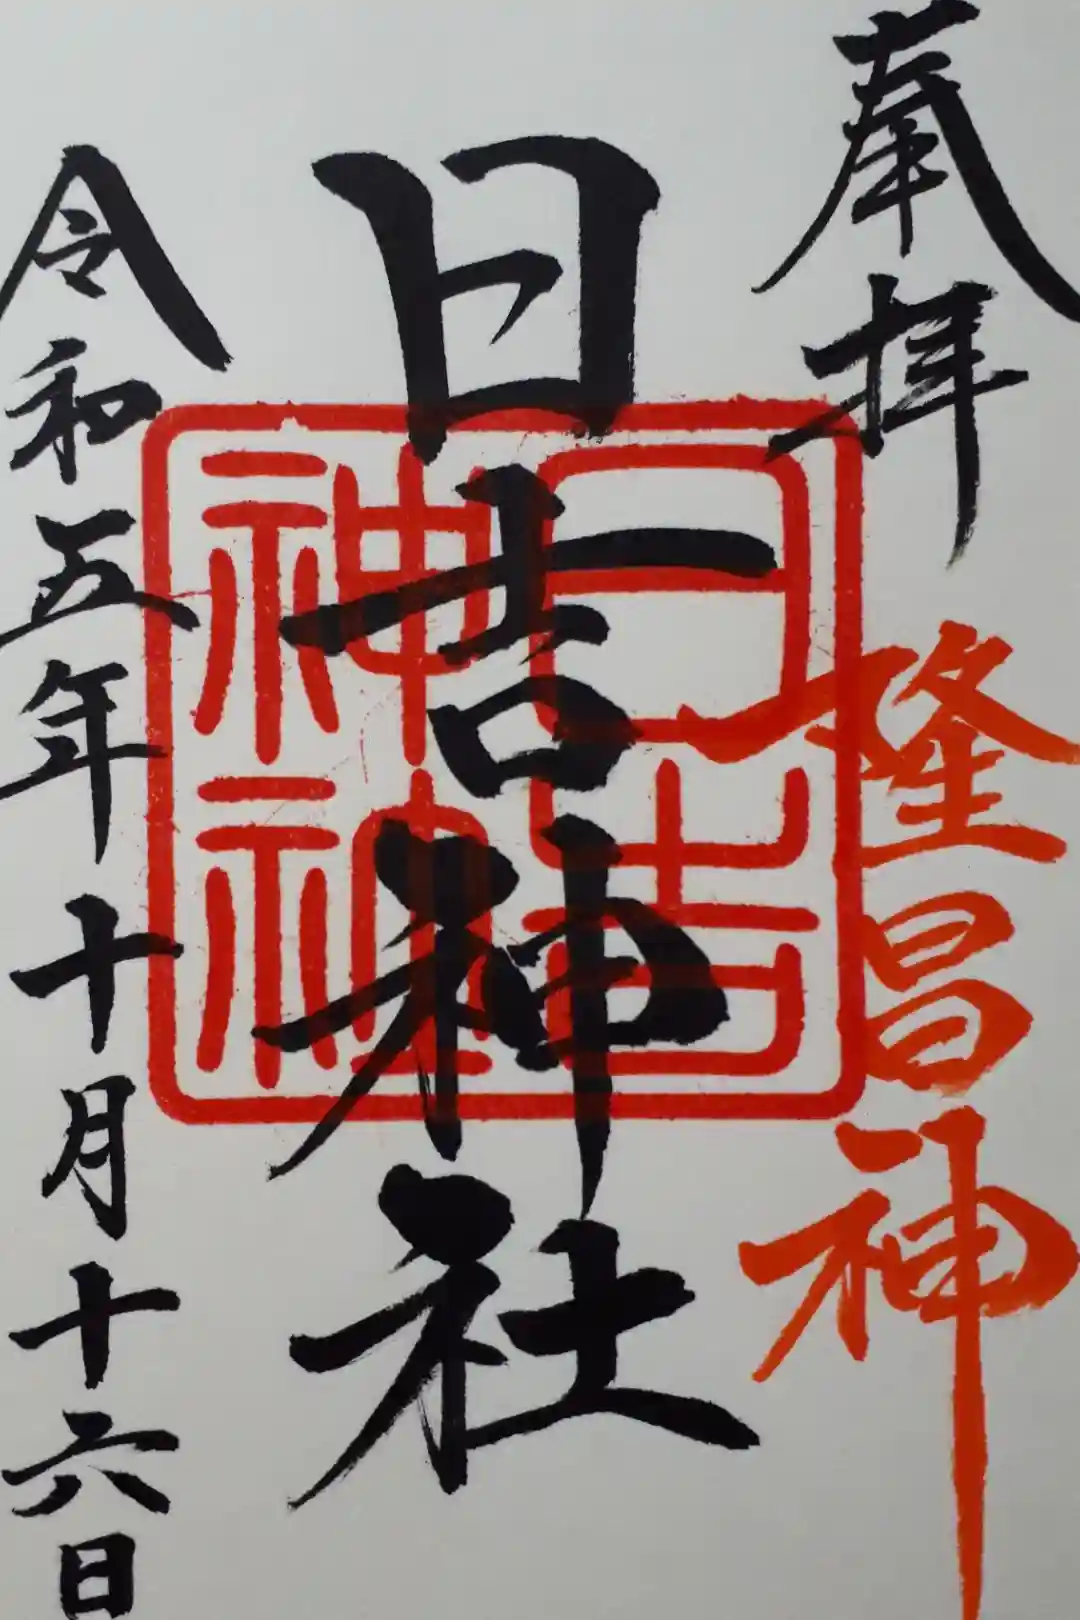 奉拝
隆昌神
日吉神社
日吉
神社
令和五年十月十六日